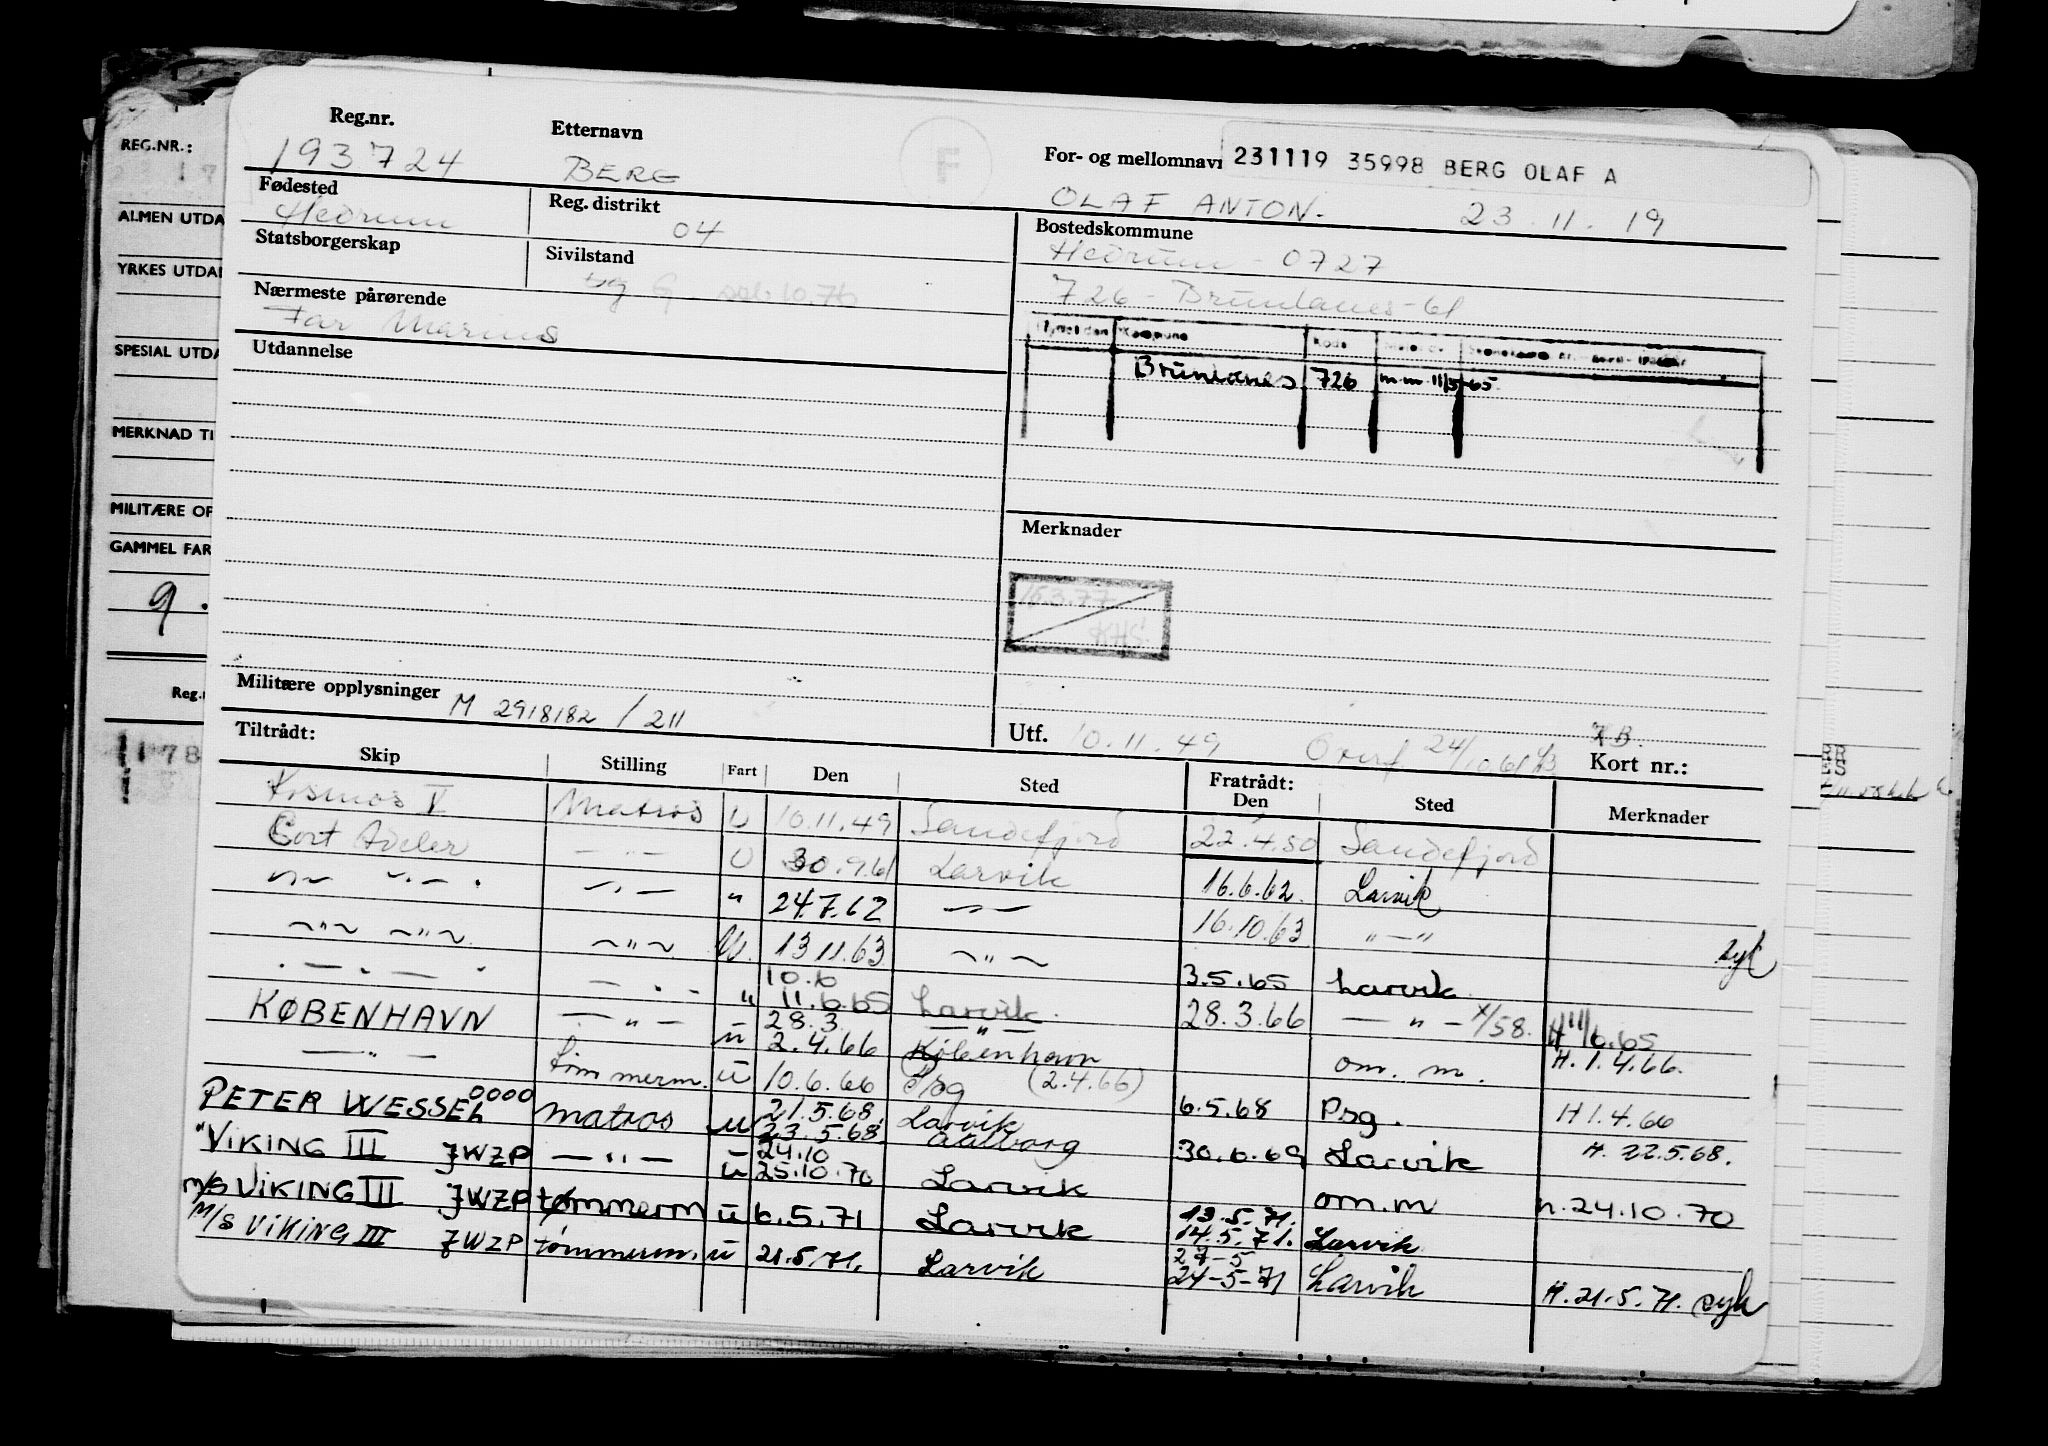 REG.NR.:
ALMEN UTDA
YRKES UTDA
SPESIAL UTDA
MERKNAD TI
MILITÆRE OP
GAMMEL FAR
9.
Reg.n
Reg.nr. Etternavn For- og mellomnavn 231119 35998 BERG OLAF A
193724 BERG OLAF ANTON. 23.11.19
Fødested Reg. distrikt Bostedskommune
Hedrum 04 Hedrum - 0727
Statsborgerskap Sivilstand 726 - Brunlanes - 61
ug G
Nærmeste pårørende
Far Marius
Kommune Kode
Brunlanes 726 m.m. 11/5-65
Utdannelse
Merknader
15.3.77
KHS.
Militære opplysninger M 2918182 / 211
Utf. 10.11.49 Overf. 24/10.61 Kort nr.: 7B.
Tiltrådt: Fratrådt:
Skip Stilling Fart Den Sted Den Sted Merknader
Kosmos V Matros U 10.11.49 Sandefjord 22.4.50 Sandefjord
Cort Adeler — " — U 30.9.61 Larvik 16.6.62 Larvik
— " — — " — — " — " 24.7.62 — " — 16.10.63 — " — syk
— " — — " — — " — U. 13.11.63 — " — 3.5.65 Larvik
— " — — " — — " — " 10.6 11.6.65 Larvik 28.3.66 — " — x/58. H 11/6.65
KØBENHAVN — " — u 28.3. 2.4.66 — " — København om. m. H. 1.4.66.
— " — tømmerm. u 10.6.66 Psg (2.4.66) 6.5.68 Psg. H 1.4.66
PETER WESSEL 0000 Matros u 21.5.68. 23.5.68 Larvik Aalborg 30.6.69 Larvik H. 22.5.68.
" VIKING III JWZP — " — u 24.10 25.10.70 Larvik om.m h.24.10.70
m/s VIKING III JWZP tømmerm u 6.5.71 Larvik 13.5.71. 14.5.71. Larvik
M/S VIKING III JWZP tømmerm. u 21.5.71. Larvik 27-5 24-5-71 Larvik H. 21.5.71. syk